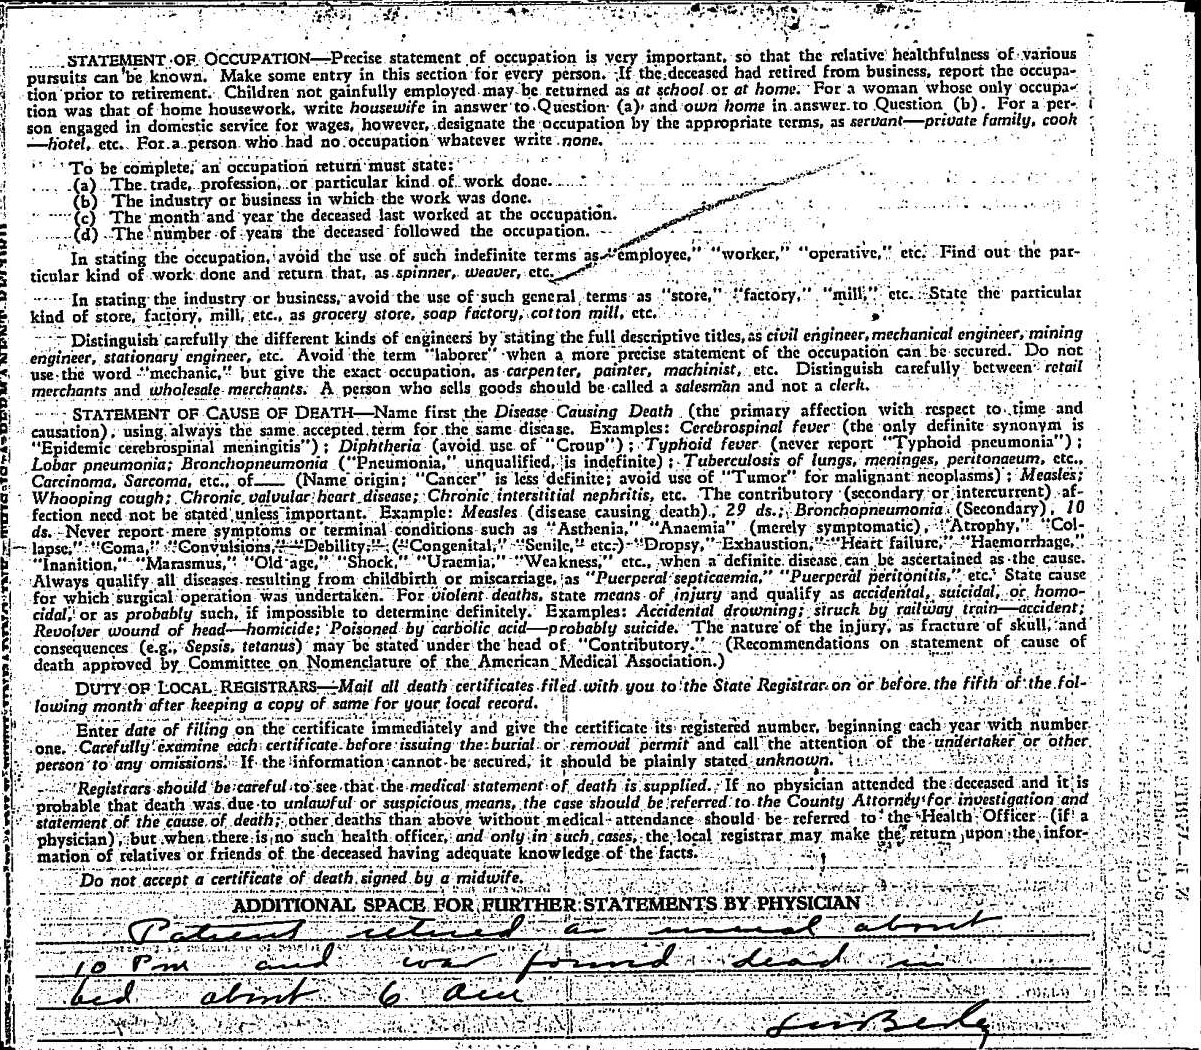 STATEMENT OF OCCUPATION—Precise statement of occupation is very important, so that the relative healthfulness of various
pursuits can be known. Make some entry in this section for every person. If the deceased had retired from business, report the occupa-
tion prior to retirement. Children not gainfully employed may be returned as at school or at home. For a woman whose only occupa-
tion was that of home housework, write housewife in answer to Question (a) and own home in answer to Question (b). For a per-
son engaged in domestic service for wages, however, designate the occupation by the appropriate terms, as servant—private family, cook
—hotel, etc. For a person who had no occupation whatever write none.
To be complete, an occupation return must state:
(a) The trade, profession, or particular kind of work done.
(b) The industry or business in which the work was done.
(c) The month and year the deceased last worked at the occupation.
(d) The number of years the deceased followed the occupation.
In stating the occupation, avoid the use of such indefinite terms as "employee," "worker," "operative," etc. Find out the par-
ticular kind of work done and return that, as spinner, weaver, etc.
In stating the industry or business, avoid the use of such general terms as "store," "factory," "mill," etc. State the particular
kind of store, factory, mill, etc., as grocery store, soap factory, cotton mill, etc.
Distinguish carefully the different kinds of engineers by stating the full descriptive titles, as civil engineer, mechanical engineer, mining
engineer, stationary engineer, etc. Avoid the term "laborer" when a more precise statement of the occupation can be secured. Do not
use the word "mechanic," but give the exact occupation, as carpenter, painter, machinist, etc. Distinguish carefully between retail
merchants and wholesale merchants. A person who sells goods should be called a salesman and not a clerk.
STATEMENT OF CAUSE OF DEATH—Name first the Disease Causing Death (the primary affection with respect to time and
causation), using always the same accepted term for the same disease. Examples: Cerebrospinal fever (the only definite synonym is
"Epidemic cerebrospinal meningitis"); Diphtheria (avoid use of "Croup"); Typhoid fever (never report "Typhoid pneumonia");
Lobar pneumonia; Bronchopneumonia ("Pneumonia," unqualified, is indefinite); Tuberculosis of lungs, meninges, peritonaeum, etc.,
Carcinoma, Sarcoma, etc., of___ (Name origin; "Cancer" is less definite; avoid use of "Tumor" for malignant neoplasms); Measles;
Whooping cough; Chronic valvular heart disease; Chronic interstitial nephritis, etc. The contributory (secondary or intercurrent) af-
fection need not be stated unless important. Example: Measles (disease causing death), 29 ds.; Bronchopneumonia (Secondary), 10
ds. Never report mere symptoms or terminal conditions such as "Asthenia," "Anaemia" (merely symptomatic), "Atrophy," "Col-
lapse," "Coma," "Convulsions," "Debility," ("Congenital," "Senile," etc.) "Dropsy," Exhaustion," "Heart failure," "Haemorrhage,"
"Inanition," "Marasmus," "Old age," "Shock," "Uraemia," "Weakness," etc., when a definite disease can be ascertained as the cause.
Always qualify all diseases resulting from childbirth or miscarriage, as "Puerperal septicaemia," "Puerperal peritonitis," etc. State cause
for which surgical operation was undertaken. For violent deaths, state means of injury and qualify as accidental, suicidal, or homo-
cidal, or as probably such, if impossible to determine definitely. Examples: Accidental drowning; struck by railway train—accident;
Revolver wound of head—homicide; Poisoned by carbolic acid—probably suicide. The nature of the injury, as fracture of skull, and
consequences (e.g., Sepsis, tetanus) may be stated under the head of "Contributory." (Recommendations on statement of cause of
death approved by Committee on Nomenclature of the American Medical Association.)
DUTY OF LOCAL REGISTRARS—Mail all death certificates filed with you to the State Registrar on or before the fifth of the fol-
lowing month after keeping a copy of same for your local record.
Enter date of filing on the certificate immediately and give the certificate its registered number, beginning each year with number
one. Carefully examine each certificate before issuing the burial or removal permit and call the attention of the undertaker or other
person to any omissions. If the information cannot be secured, it should be plainly stated unknown.
Registrars should be careful to see that the medical statement of death is supplied. If no physician attended the deceased and it is
probable that death was due to unlawful or suspicious means, the case should be referred to the County Attorney for investigation and
statement of the cause of death; other deaths than above without medical attendance should be referred to the Health Officer (if a
physician), but when there is no such health officer, and only in such cases, the local registrar may make the return upon the infor-
mation of relatives or friends of the deceased having adequate knowledge of the facts.
Do not accept a certificate of death signed by a midwife.
ADDITIONAL SPACE FOR FURTHER STATEMENTS BY PHYSICIAN
Patient retired as usual about
10 Pm and was found dead in
bed about 6 am